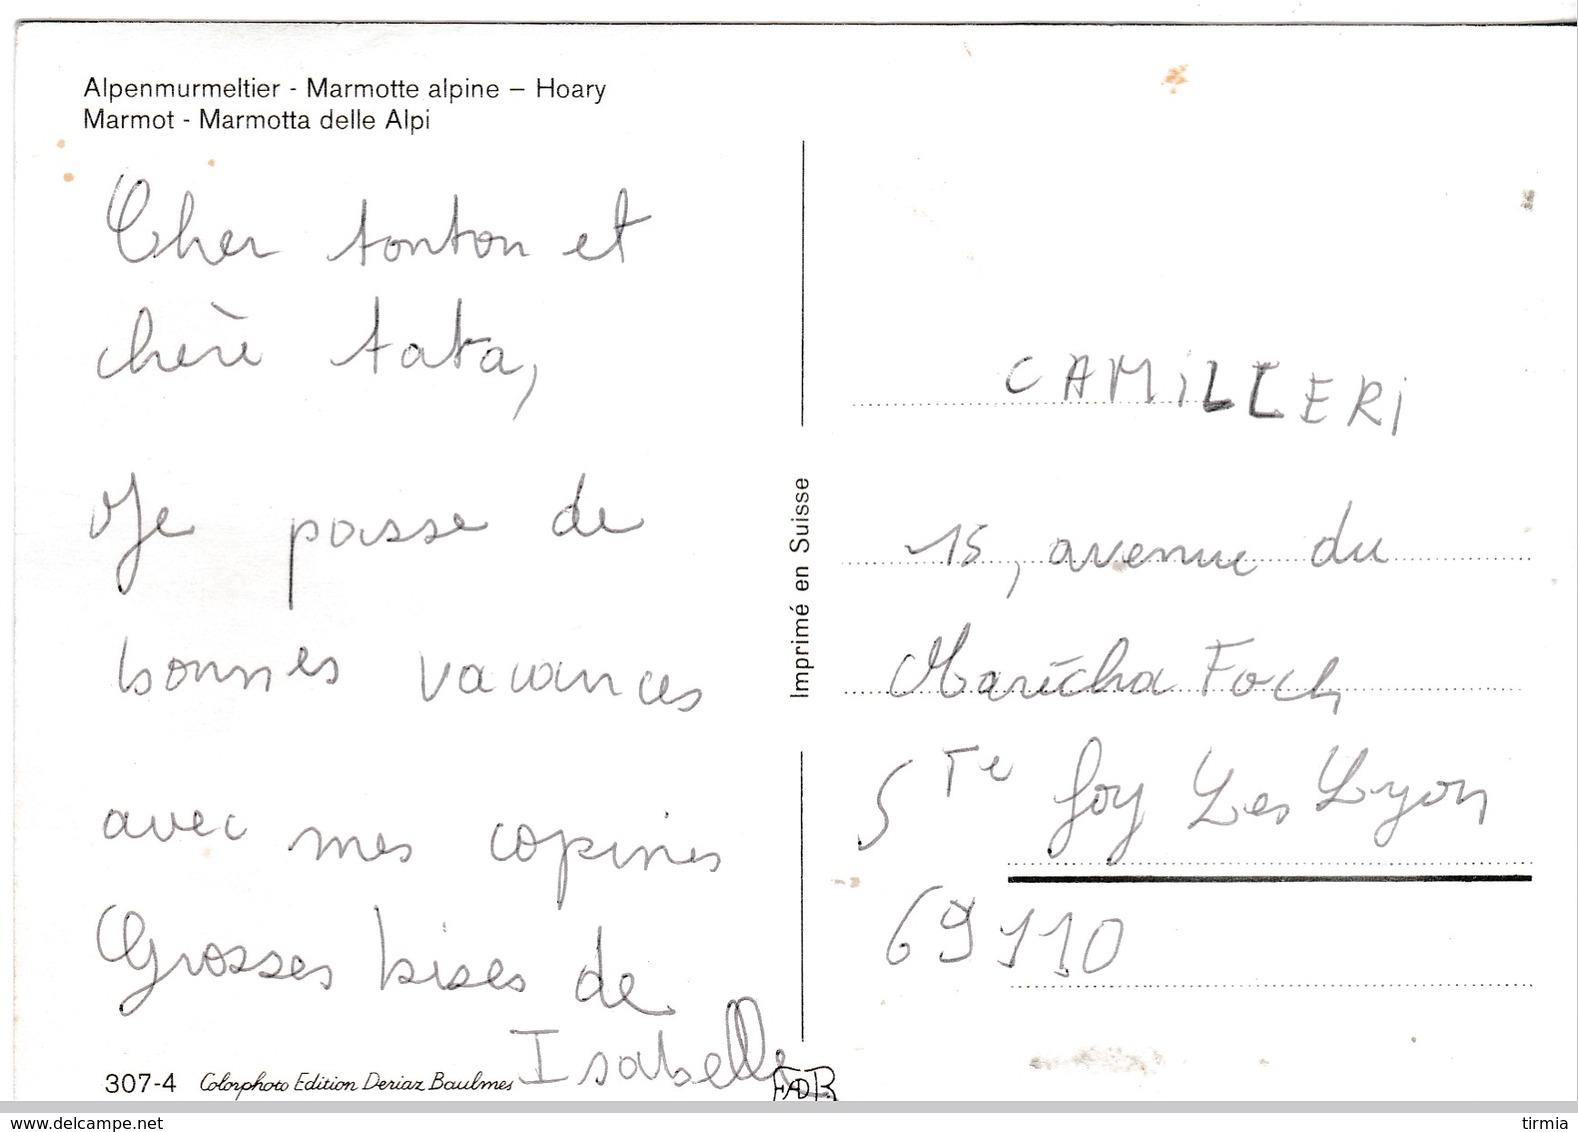 Alpenmurmeltier - Marmotte alpine – Hoary
Marmot - Marmotta delle Alpi
Cher tonton et
chère tata,
Je passe de
bonnes vacances
avec mes copines
Grosses bises de
Isabelle
307-4 Colorphoto Edition Deriaz Baulmes
Imprimé en Suisse
CAMiLLERi
15, avenue du
Marécha Foch
STe foy Les Lyon
69110
www.delcampe.net
tirmia